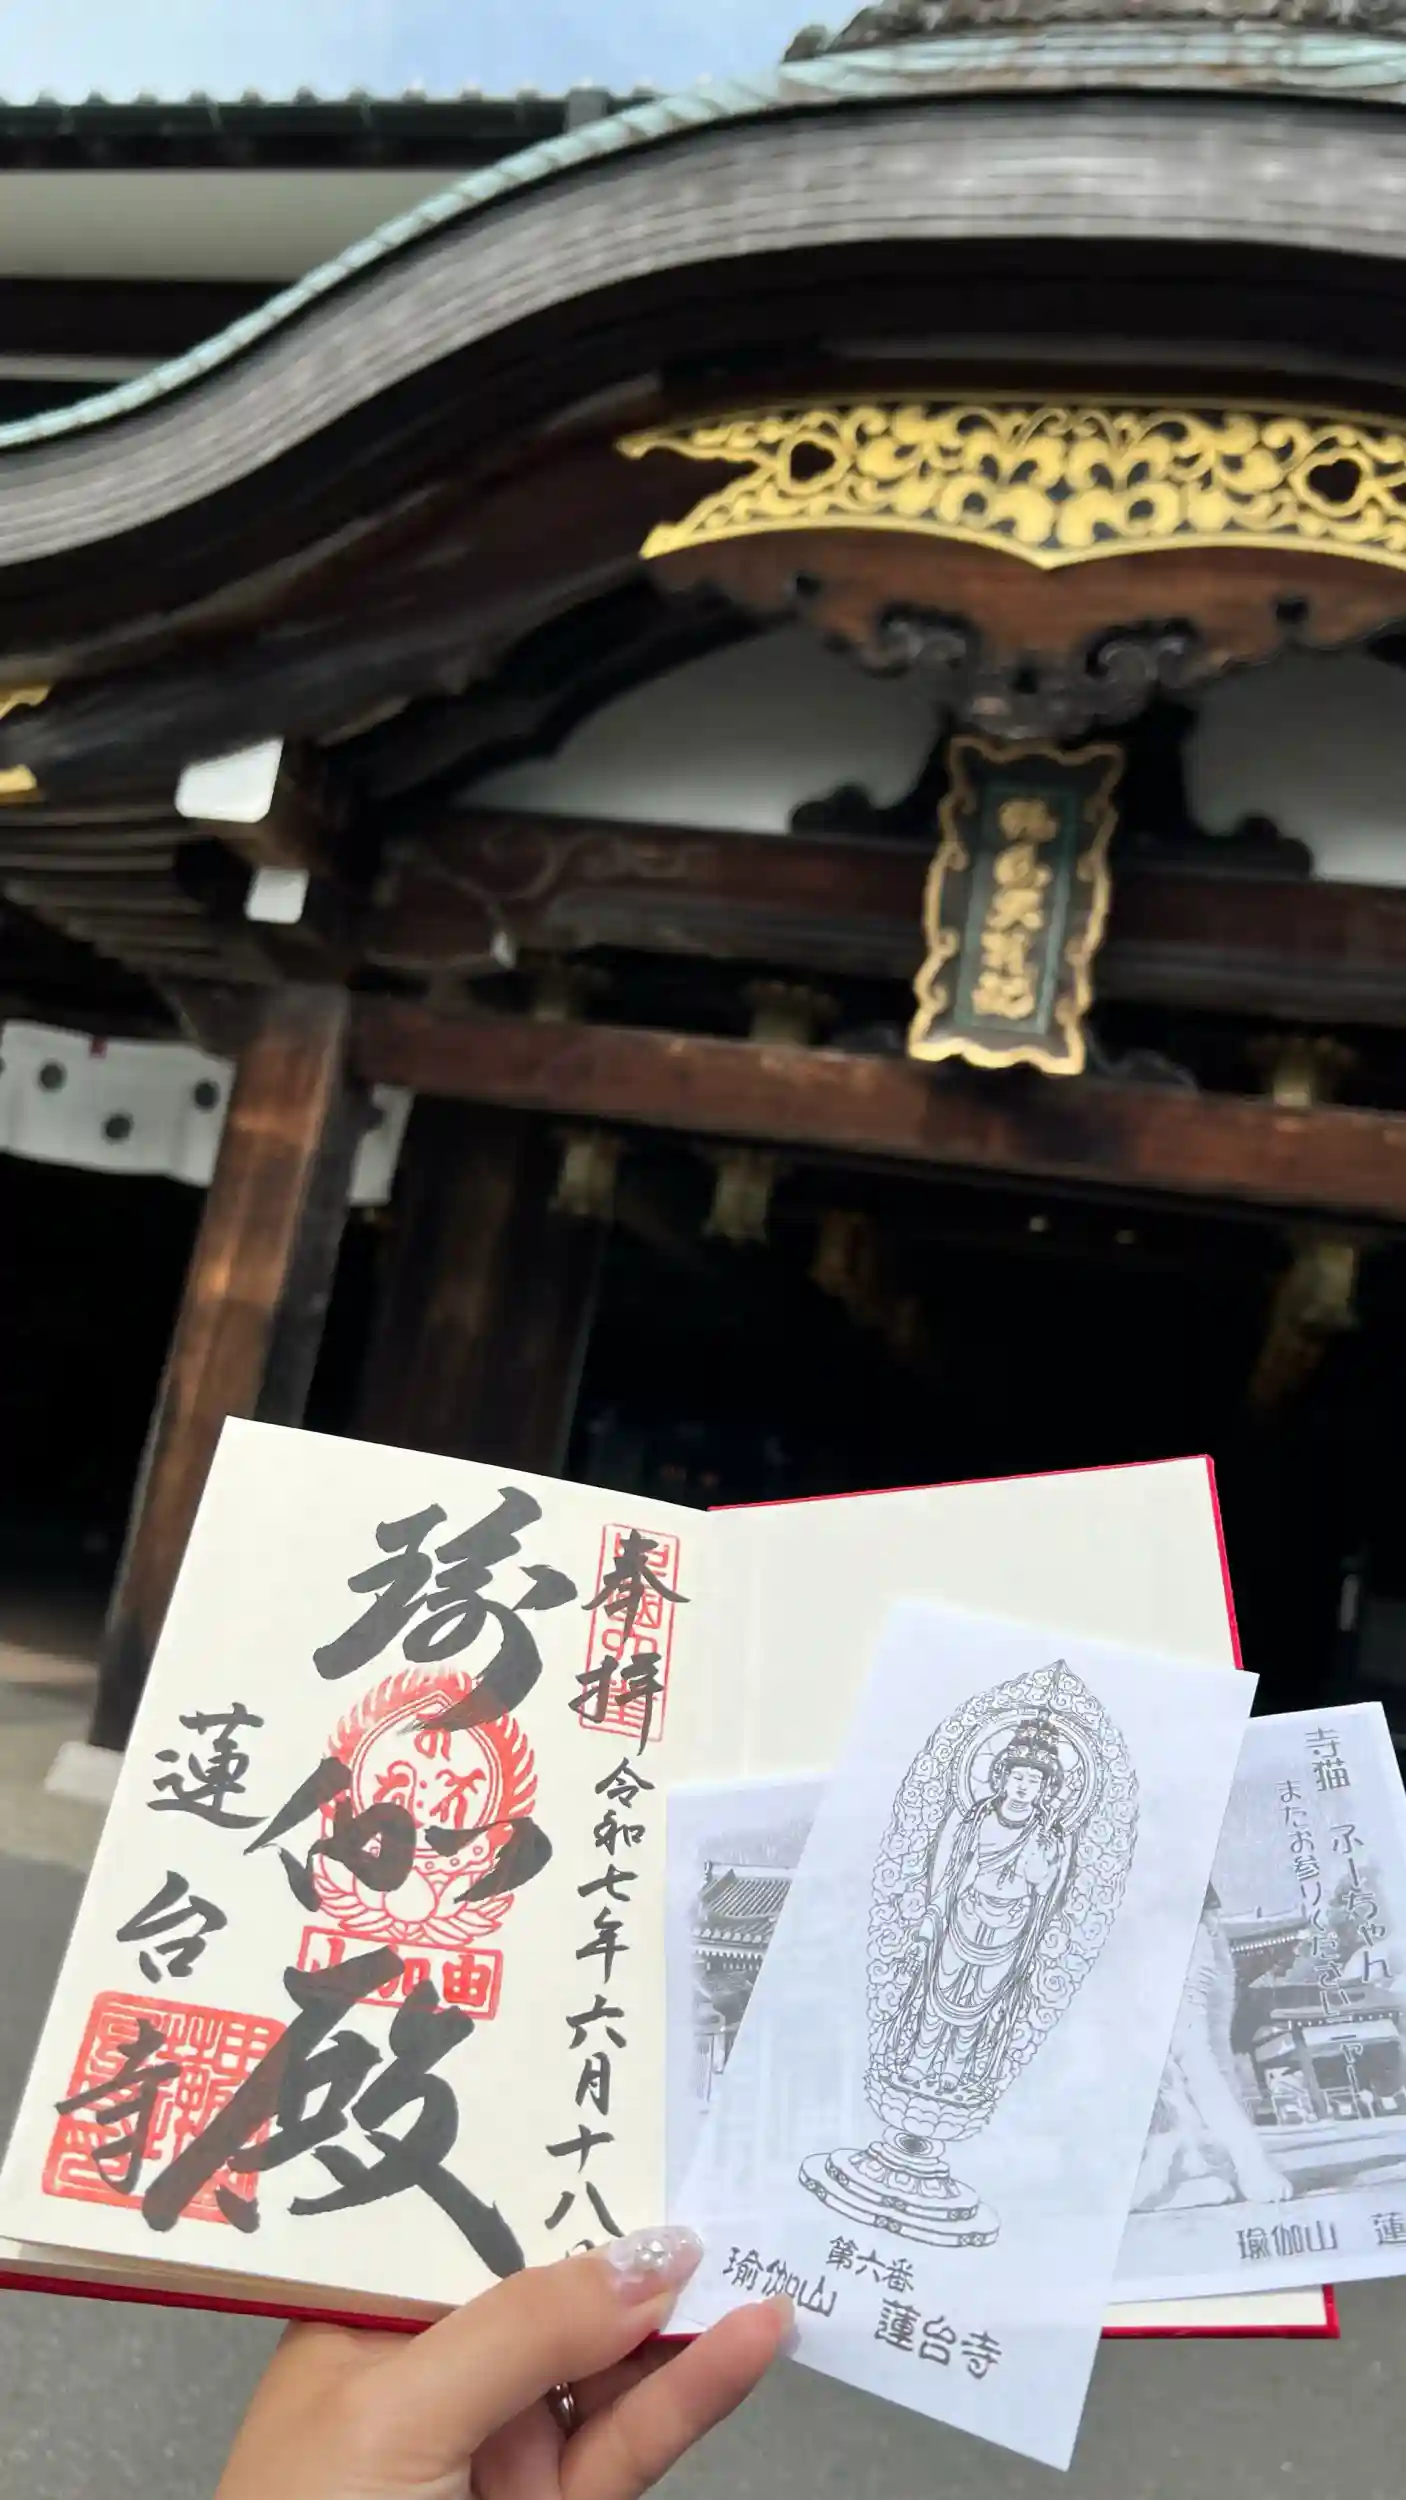 奉拝
令和七年六月十八日
瑜伽殿
蓮台寺
第六番
瑜伽山 蓮台寺
寺猫 ふーちゃん
またお参りくださいニャー
瑜伽山 蓮